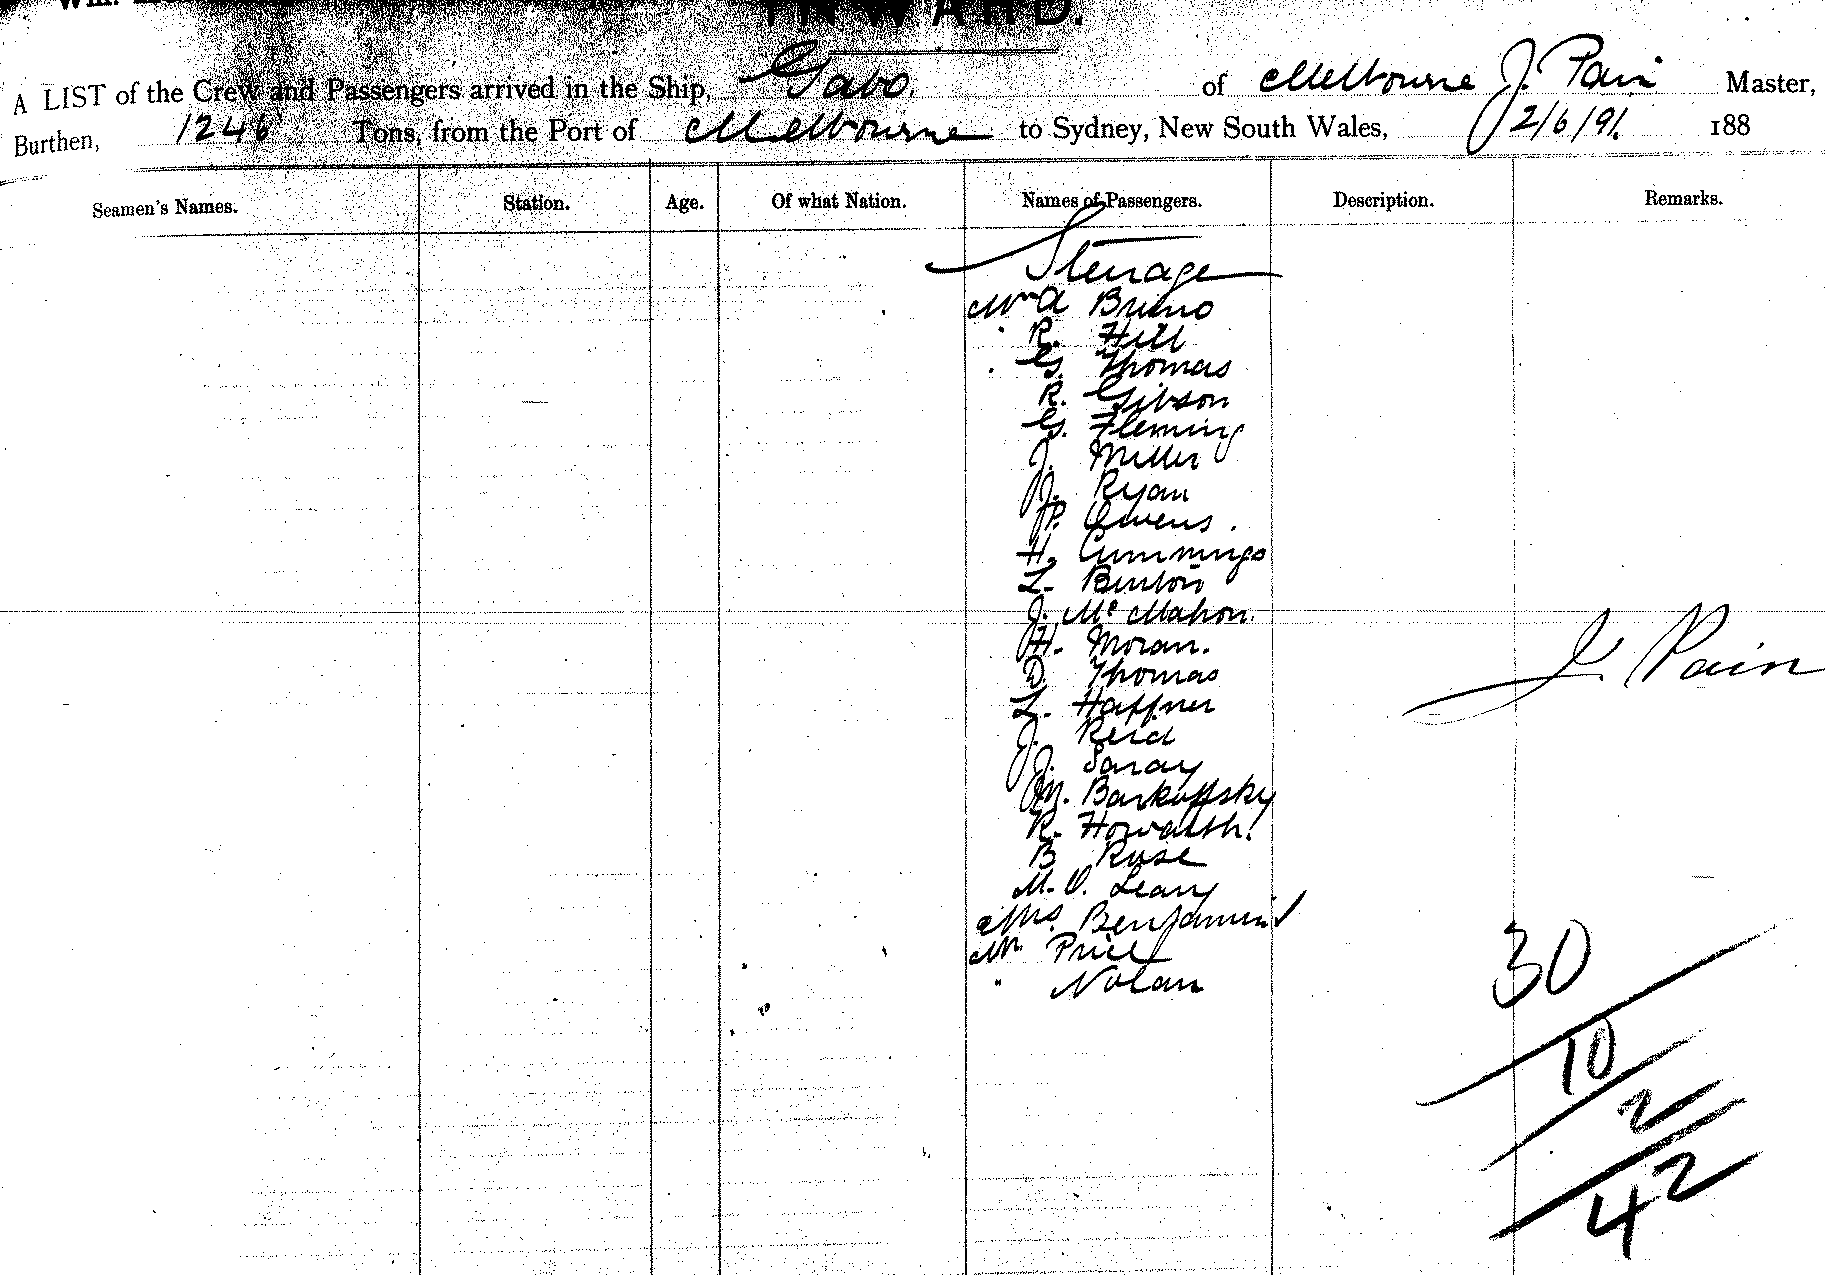 INWARD.
A LIST of the Crew and Passengers arrived in the Ship, Gabo. of Melbourne J. Pain Master,
Burthen, 1246 Tons, from the Port of Melbourne to Sydney, New South Wales, 2/6/91. 188
Seamen's Names. Station. Age. Of what Nation. Names of Passengers. Description. Remarks.
Steerage
Mr A Bruno
" R. Hill
" G. Thomas
R. Gibson
G. Fleming
J. Miller
J. Ryan
P. Owens.
H. Cummings
L. Burton
J. McMahon.
H. Moran.
D. Thomas
L. Haffner
J. Reid
J.
M. Barkoffsky
R. Howarth.
B Rose
M. O. Leary
Mrs. Benjamin
Mr Price
" Nolan
J. Pain
30
10
2
42